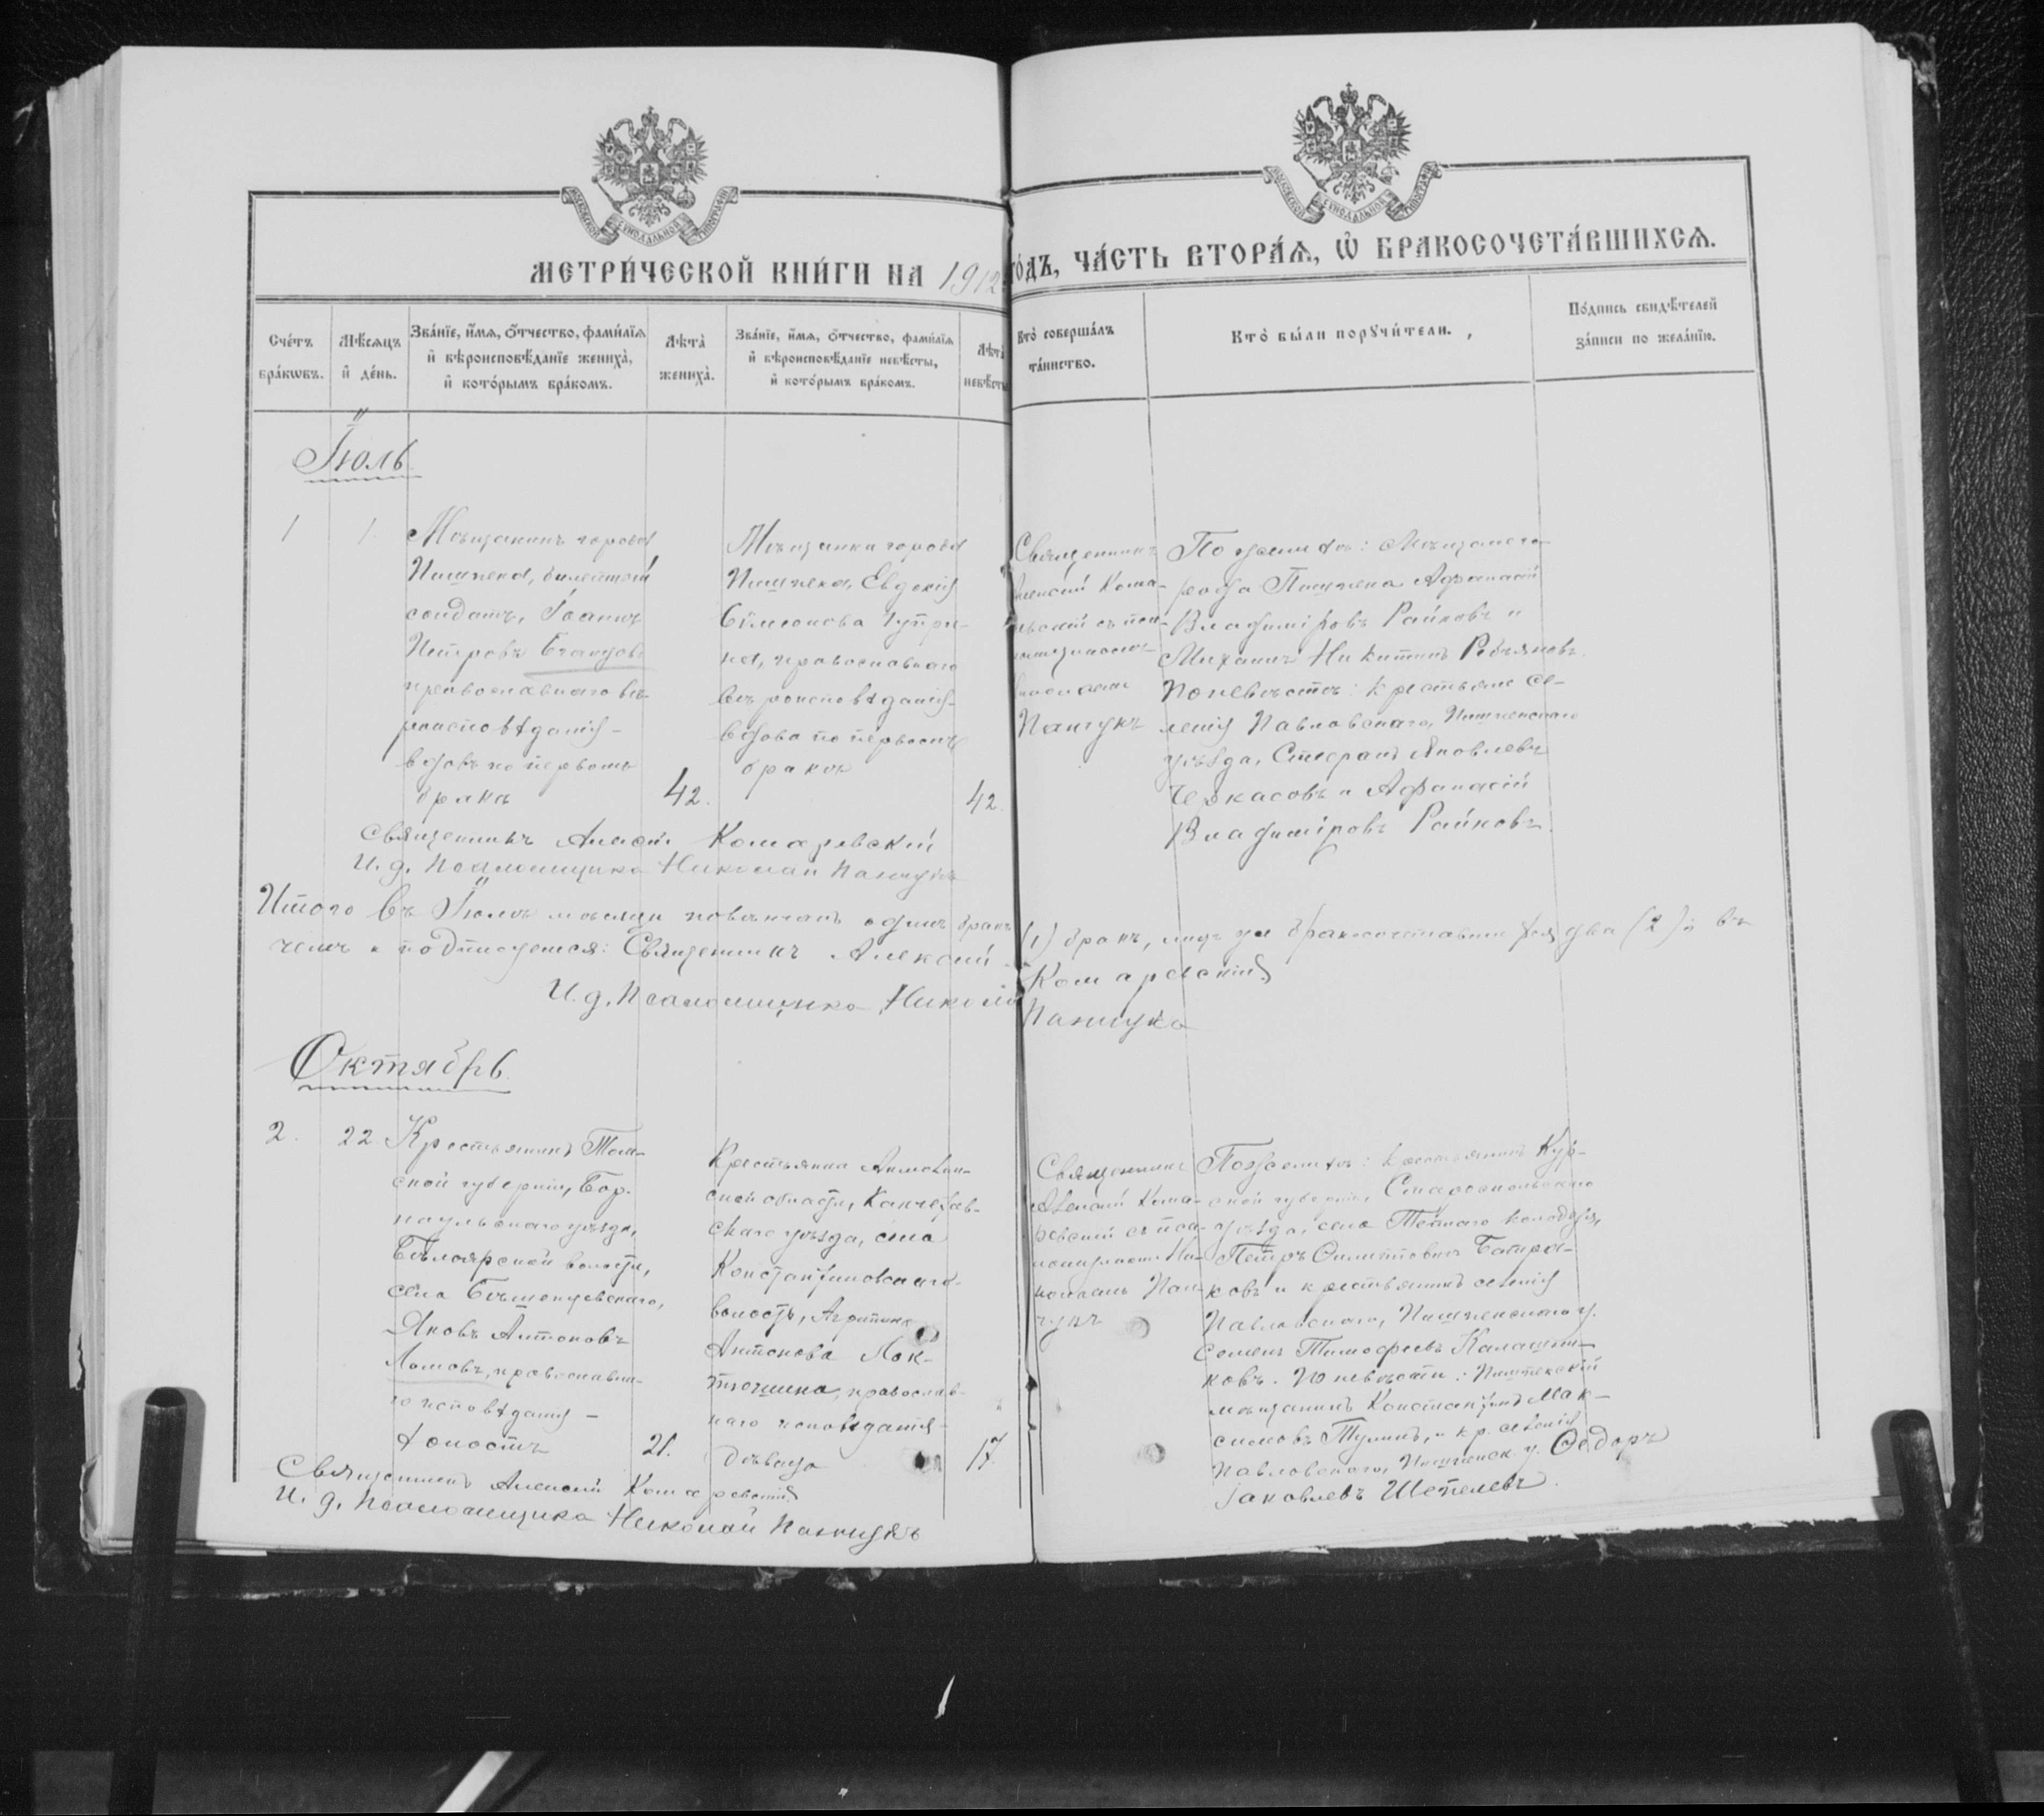 МОСКОВСКОЙ СѴНОДАЛЬНОЙ ТИПОГРАФІИ
МОСКОВСКОЙ СѴНОДАЛЬНОЙ ТИПОГРАФІИ
МЕТРИ́ЧЕСКОЙ КНИ́ГИ НА 1912 ГО́ДЪ, ЧА́СТЬ ВТОРА́Ѧ, Ѽ БРАКОСОЧЕТА́ВШИХСѦ.
Сче́тъ
бра́кѡвъ.
Мѣ́сяцъ
и҆ де́нь.
Зва́нїе, и҆́мѧ, ѻ҆́тчество, фами́лїѧ
и҆ вѣроисповѣ́данїе жениха̀,
и҆ кото́рымъ бра́комъ.
Лѣта̀
жениха̀.
Зва́нїе, и҆́мѧ, ѻ҆́тчество, фами́лїѧ
и҆ вѣроисповѣ́данїе невѣ́сты,
и҆ кото́рымъ бра́комъ.
Лѣта̀
невѣ́сты
Кто̀ соверша́лъ
та́инство.
Кто̀ бы́ли порꙋчи́тели.
По́дпись свидѣ́телей
за́писи по жела́нїю.
Іюль
1
1
Мѣщанинъ города
Пишпека, билетный
солдатъ, Іоаннъ
Петровъ
православнаго вѣ-
роисповѣданія –
вдовъ по первомъ
бракѣ
42.
Мѣщанка города
Пишпека, Евдокія
Сѵмеонова
на, православнаго
вѣроисповѣданія –
вдова по первомъ
бракѣ
42.
Священникъ
Алексій Кома-
ревскій съ пса-
ломщикомъ
Николаемъ
Панчукъ
По женихѣ: Мѣщане го-
рода Пишпека Афанасій
Владиміровъ Райковъ и
Михаилъ Никитинъ
По невѣстѣ: крестьяне се-
ленія Павловскаго, Пишпекскаго
уѣзда, Стефанъ Яковлевъ
Черкасовъ и Афанасій
Владиміровъ Райковъ.
Священникъ Алексій Комаревскій
И. д. Псаломщика Николай Панчукъ
Итого въ Іюлѣ мѣсяцѣ повѣнчанъ одинъ бракъ (1) бракъ, бракосочетавшихся два (2); въ
чемъ и подписуемся: Священникъ Алексій Комаревскій
И. д. Псаломщика Николай Панчукъ
Октябрь.
2.
22
Крестьянинъ Том-
ской губерніи, Бар-
наульскаго уѣзда,
Бѣлоярской волости,
села
Яковъ Антоновъ
Ломовъ, православна-
го исповѣданія –
холостъ
21.
Крестьянка Акмолин-
ской области, Кокчетав-
скаго уѣзда, села
Константиновскаго
волости, Агрипина
Антонова Лок-
тюшина, православ-
наго исповѣданія –
дѣвица
17.
Священникъ
Алексій Кома-
ревскій съ пса-
ломщикомъ Ни-
колаемъ Пан-
чукъ
По женихѣ: крестьянинъ Кур-
ской губерніи, Старооскольскаго
уѣзда, села Теплаго колодезя,
Петръ Батра-
ковъ и крестьянинъ селенія
Павловскаго, Пишпекскаго у.
Семенъ Тимофеевъ Калашни-
ковъ. По невѣстѣ: Пишпекскій
мѣщанинъ Константинъ Мак-
симовъ Тулинъ, и кр. селенія
Павловскаго, Пишпекск. у. Ѳедоръ
Іаковлевъ Шепелевъ.
Священникъ Алексій Комаревскій
И. д. Псаломщика Николай Панчукъ